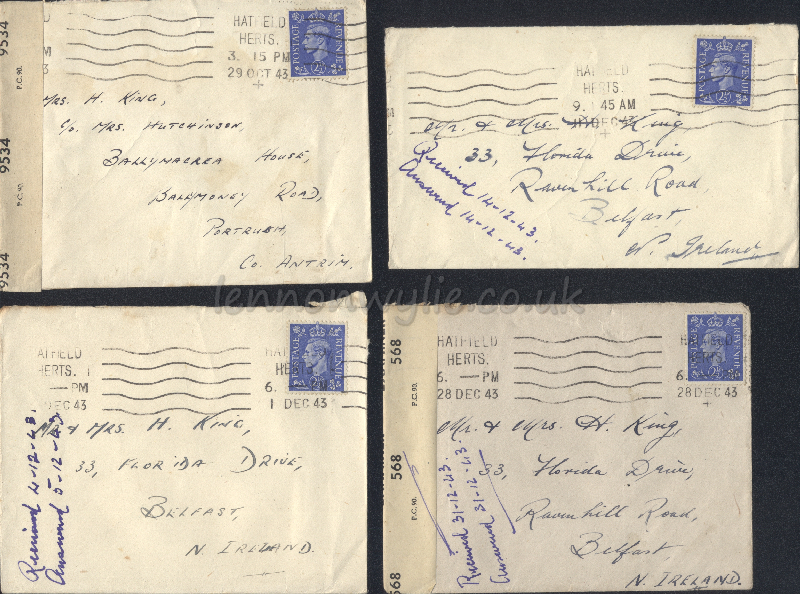 9534
P.C.90.
9534
P.C.90.
9534
HATFIELD
HERTS.
3. 15 PM
29 OCT 43
POSTAGE
REVENUE
2½
Mrs. H. King,
c/o Mrs. Hutchinson,
Ballymacrea House,
Ballymoney Road,
Portrush,
Co. Antrim.
HATFIELD
HERTS.
9. 45 AM
DEC 43
POSTAGE
REVENUE
2½
Mr. & Mrs. H. King,
33, Florida Drive,
Ravenhill Road,
Belfast,
N. Ireland
Received 14-12-43.
Answered 14-12-43.
lennonwylie.co.uk
HATFIELD
HERTS.
— PM
DEC 43
HATFIELD
HERTS.
6. PM
1 DEC 43
POSTAGE
REVENUE
2½
Mr & Mrs. H. King,
33, Florida Drive,
Belfast,
N. Ireland.
Received 4-12-43.
Answered 5-12-43.
568
P.C.90.
568
P.C.90.
568
HATFIELD
HERTS.
6. — PM
28 DEC 43
HATFIELD
HERTS.
6. PM
28 DEC 43
POSTAGE
REVENUE
2½
Mr. & Mrs. H. King,
33, Florida Drive,
Ravenhill Road,
Belfast
N. Ireland.
Received 31-12-43.
Answered 31-12-43